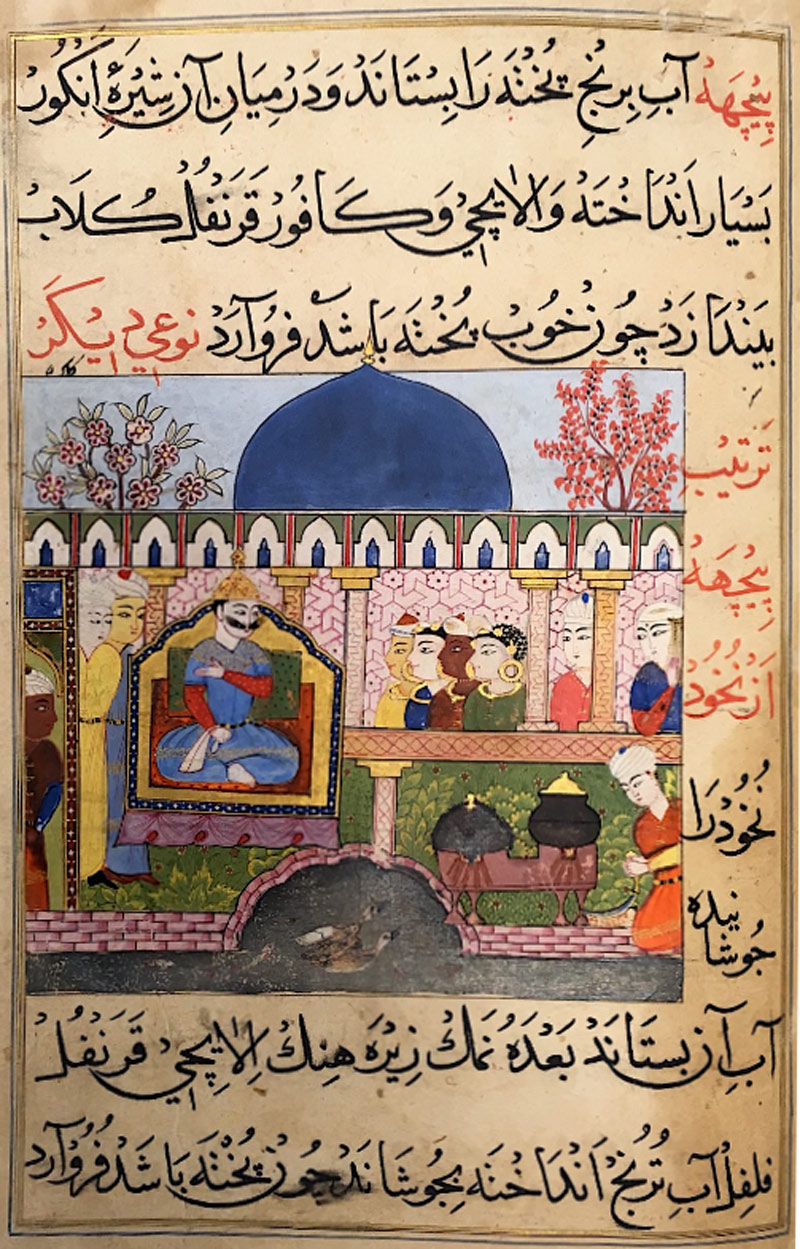 پِیْچْهَهْ آبِ بِرِنْجِ پُخْتَه رَا بِسْتَانَدْ وَدَرْ مِیَانِ آن شِیْرَهٔ اَنْکُوْرْ
بَسْیَار اَنْدَاخْتَهْ وَالَایِچِيْ وَکَافُوْرْ قَرَنْفُلْ کُلَابْ
بِیَنْدَازَدْ چُوْن خُوْبْ پُخْتَه بَاشَدْ فِرُوْآرَدْ نَوْعِي دِیْکَرْ
تَرْتِیْبِ
پِیْچْهَهْ
اَزْ نُخُوْدْ
نُخُوْدْ رَا
جُوْشَانِیْدَه
آبِ آن بِسْتَانَدْ بَعْدَهُ نَمَكْ زِیْرَه هِنْكْ اِلَایِچِيْ قَرَنْفُلْ
فِلْفِلْ آبِ تُرُنْجْ اَنْدَاخْتَه بِجُوْشَانَدْ چُوْن پُخْتَه بَاشَدْ فُرُوْآرَد